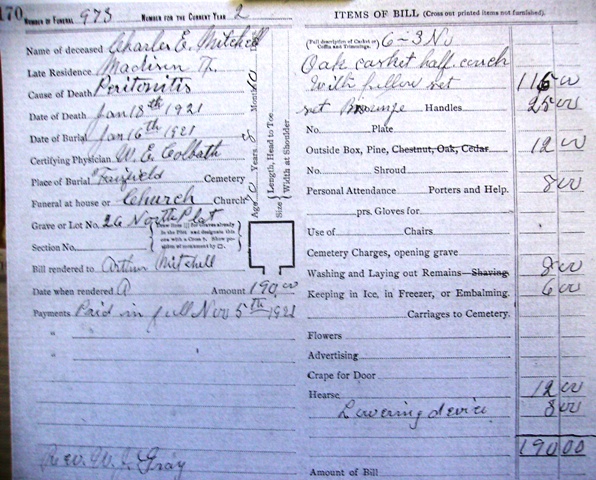 170
NUMBER OF FUNERAL 973 NUMBER FOR THE CURRENT YEAR 2
Name of deceased Charles E. Mitchell
Late Residence Madison
Cause of Death Peritonitis
Date of Death Jan 13th 1921
Date of Burial Jan 16th 1921
Certifying Physician W. E. Colbath
Place of Burial Fairfield Cemetery
Funeral at house or Church Church
Grave or Lot No. 26 North Plat
Section No.
Bill rendered to Arthur Mitchell
Date when rendered Amount 190.00
Payments Paid in full Nov 5th 1921
"
"
Rev. W. J. Gray
Age Years 8 Months 10
Size { Length, Head to Toe
Width at Shoulder
ITEMS OF BILL (Cross out printed items not furnished).
(Full description of Casket or Coffin and Trimmings.) 6-3 No
Oak casket half couch
With pillow set 115 00
set Bronze Handles 25 00
No. Plate
Outside Box, Pine, Chestnut, Oak, Cedar 12 00
No. Shroud
Personal Attendance Porters and Help. 8 00
prs. Gloves for
Use of Chairs
Cemetery Charges, opening grave
Washing and Laying out Remains Shaving 8 00
Keeping in Ice, in Freezer, or Embalming. 6 00
Carriages to Cemetery.
Flowers
Advertising
Crape for Door
Hearse 12 00
Lowering device 8 00
190 00
Amount of Bill